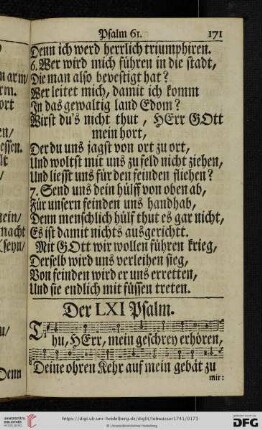 Psalm 61. 171
Denn ich werd herrlich triumphiren.
6. Wer wird mich führen in die stadt,
Die man also bevestigt hat?
Wer leitet mich, damit ich komm
In das gewaltig land Edom?
Wirst du's nicht thut, HErr GOtt
mein hort,
Der du uns jagst von ort zu ort,
Und woltst mit uns zu feld nicht ziehen,
Und liesst uns für den feinden fliehen?
7. Send uns dein hülff von oben ab,
Für unsern feinden uns handhab,
Denn menschlich hülf thut es gar nicht,
Es ist damit nichts ausgericht.
Mit GOtt wir wollen führen krieg,
Derselb wird uns verleihen sieg,
Von feinden wird er uns erretten,
Und sie endlich mit füssen treten.
Der LXI Psalm.
Thu, HErr, mein geschrey erhören,
Deine ohren kehr auf mein gebät zu
mir:
Denn
https://digi.ub.uni-heidelberg.de/diglit/
DFG